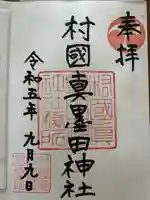 奉拝
村國真墨田神社
令和五年九月九日